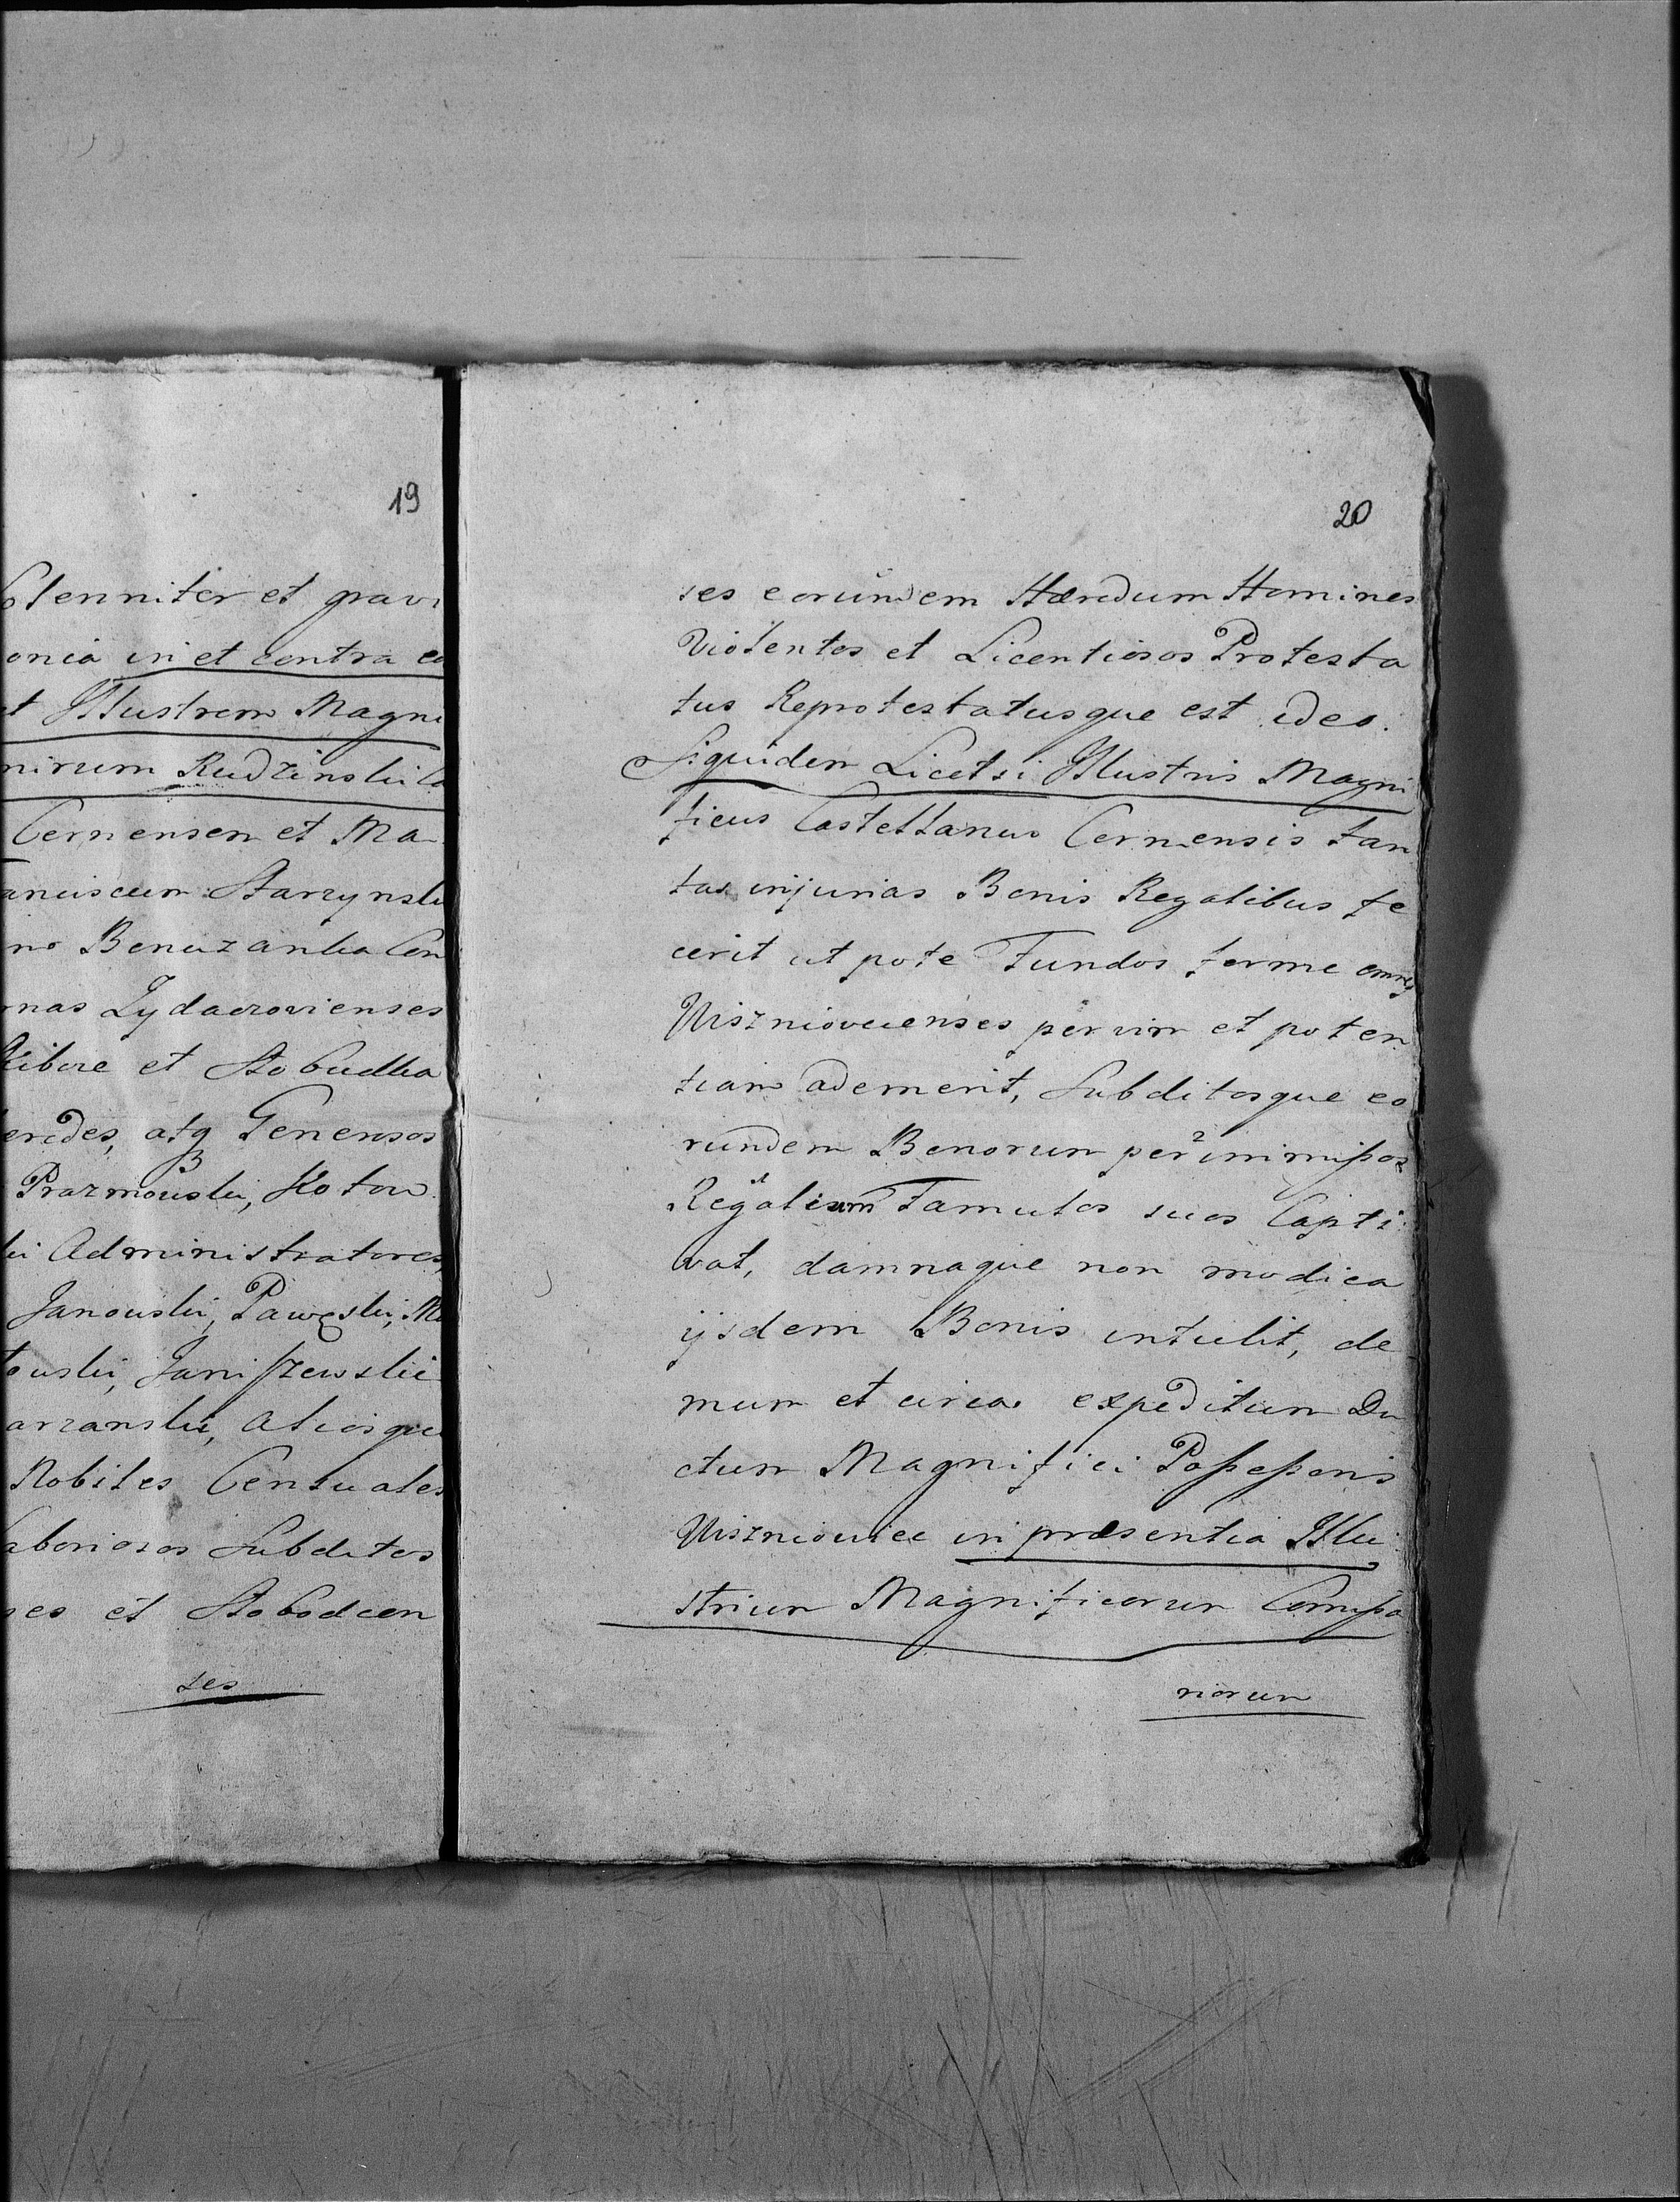 19
olenniter et gravi
onia in et contra eo
et Illustrem Magni
mirum Rudzinski Ca
Cernensem et Ma
anciscum Starzynski
no
nas
et Slobudka
eredes, atq Generosos
Prazmouski, Kotow
ki Administratores,
Janouski, Pawęski, Ma
ouski, Janiszewskie
arzanski, aliosque
Nobiles Censuales
aboriosos Subditos
ses et Slobodcen
ses
20
ses eorundem Hæredum Homines
Violentos et Licentiosos Protesta
tus Reprotestatusque est ideo.
Siquidem Licetsi Illustris Magni
ficus Castellanus Cernensis tan
tas injurias Bonis Regalibus fe
cerit ut pote Fundos ferme omnes
Wisznioviecenses per vim et poten
tiam ademerit, Subditosque eo
rundem Bonorum per immissos
Regalium Famulos suos Capti
vat, damnaque non modica
ijsdem Bonis intulit, de
mum et circa expeditum Du
ctum Magnifici Possessoris
Wiszniowiec in præsentia Illu
strium Magnificorum Commissa
riorum